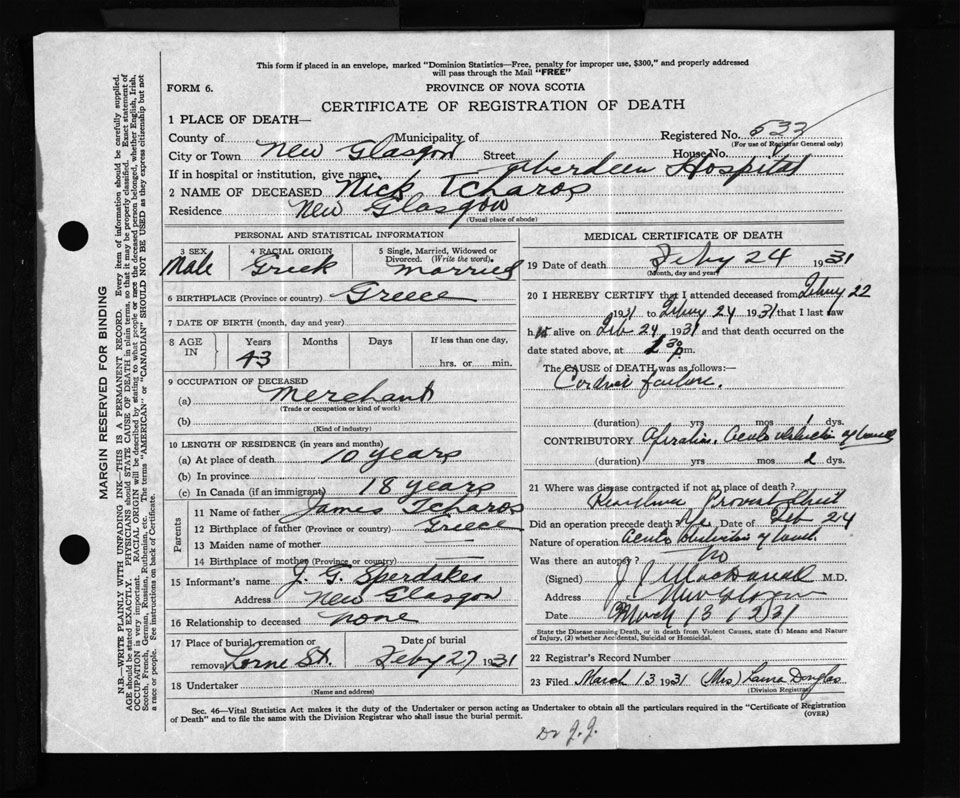 This form if placed in an envelope, marked "Dominion Statistics—Free, penalty for improper use, $300," and properly addressed
will pass through the Mail "FREE"
FORM 6.
PROVINCE OF NOVA SCOTIA
CERTIFICATE OF REGISTRATION OF DEATH
1 PLACE OF DEATH—
County of Municipality of Registered No. 533
(For use of Registrar General only)
City or Town New Glasgow Street House No.
If in hospital or institution, give name Aberdeen Hospital
2 NAME OF DECEASED Nick Tcharos
Residence New Glasgow
(Usual place of abode)
PERSONAL AND STATISTICAL INFORMATION
3 SEX Male
4 RACIAL ORIGIN Greek
5 Single, Married, Widowed or
Divorced. (Write the word). Married
6 BIRTHPLACE (Province or country) Greece
7 DATE OF BIRTH (month, day and year)
8 AGE IN Years 43 Months Days If less than one day, hrs. or min.
9 OCCUPATION OF DECEASED
(a) Merchant
(Trade or occupation or kind of work)
(b)
(Kind of industry)
10 LENGTH OF RESIDENCE (in years and months)
(a) At place of death 10 years
(b) In province
(c) In Canada (if an immigrant) 18 years
Parents
11 Name of father James Tcharos
12 Birthplace of father (Province or country) Greece
13 Maiden name of mother —
14 Birthplace of mother (Province or country) —
15 Informant's name J. G. Sperdakes
Address New Glasgow
16 Relationship to deceased none
17 Place of burial, cremation or
removal Lorne St.
Date of burial
Feby 27 1931
18 Undertaker
(Name and address)
MEDICAL CERTIFICATE OF DEATH
19 Date of death Feby 24 1931
(Month, day and year)
20 I HEREBY CERTIFY that I attended deceased from Febury 22
1931 to Febury 24 1931 that I last saw
him alive on Feb 24 1931 and that death occurred on
date stated above, at 1 30 p.m.
The CAUSE of DEATH was as follows:—
Cardiac failure.
(duration) yrs mos 1 dys.
CONTRIBUTORY Operation. Acute obstruction of bowel
(duration) yrs mos 2 dys.
21 Where was disease contracted if not at place of death?
Provost Street
Did an operation precede death Yes Date of Feb 24
Nature of operation Acute obstruction of bowel
Was there an autopsy? no
(Signed) J J MacDonald M.D.
Address New Glasgow
Date March 13 1931
State the Disease causing Death, or in death from Violent Causes, state (1) Means and Nature
of Injury, (2) whether Accidental, Suicidal or Homicidal.
22 Registrar's Record Number
23 Filed March 13 1931 (Mrs) Laura Douglas
(Division Registrar)
Sec. 46—Vital Statistics Act makes it duty of the Undertaker or person acting as Undertaker to obtain all the particulars required in the "Certificate of Registration
of Death" and to file the same with the Division Registrar who shall issue the burial permit. (OVER)
Dr J. J.
MARGIN RESERVED FOR BINDING
N.B.—WRITE PLAINLY WITH UNFADING INK—THIS IS A PERMANENT RECORD. Every item of information should be carefully supplied.
AGE should be stated EXACTLY. PHYSICIANS should STATE CAUSE OF DEATH in plain terms, so that it may be properly classified. Exact statement of
OCCUPATION is very important. RACIAL ORIGIN will be described by stating to what people or race the deceased person belonged, whether English, Irish,
Scotch, French, German, Russian, Ruthenian, etc. The terms "AMERICAN" or "CANADIAN" SHOULD NOT BE USED as they express citizenship but not
a race or people. See instructions on back of Certificate.